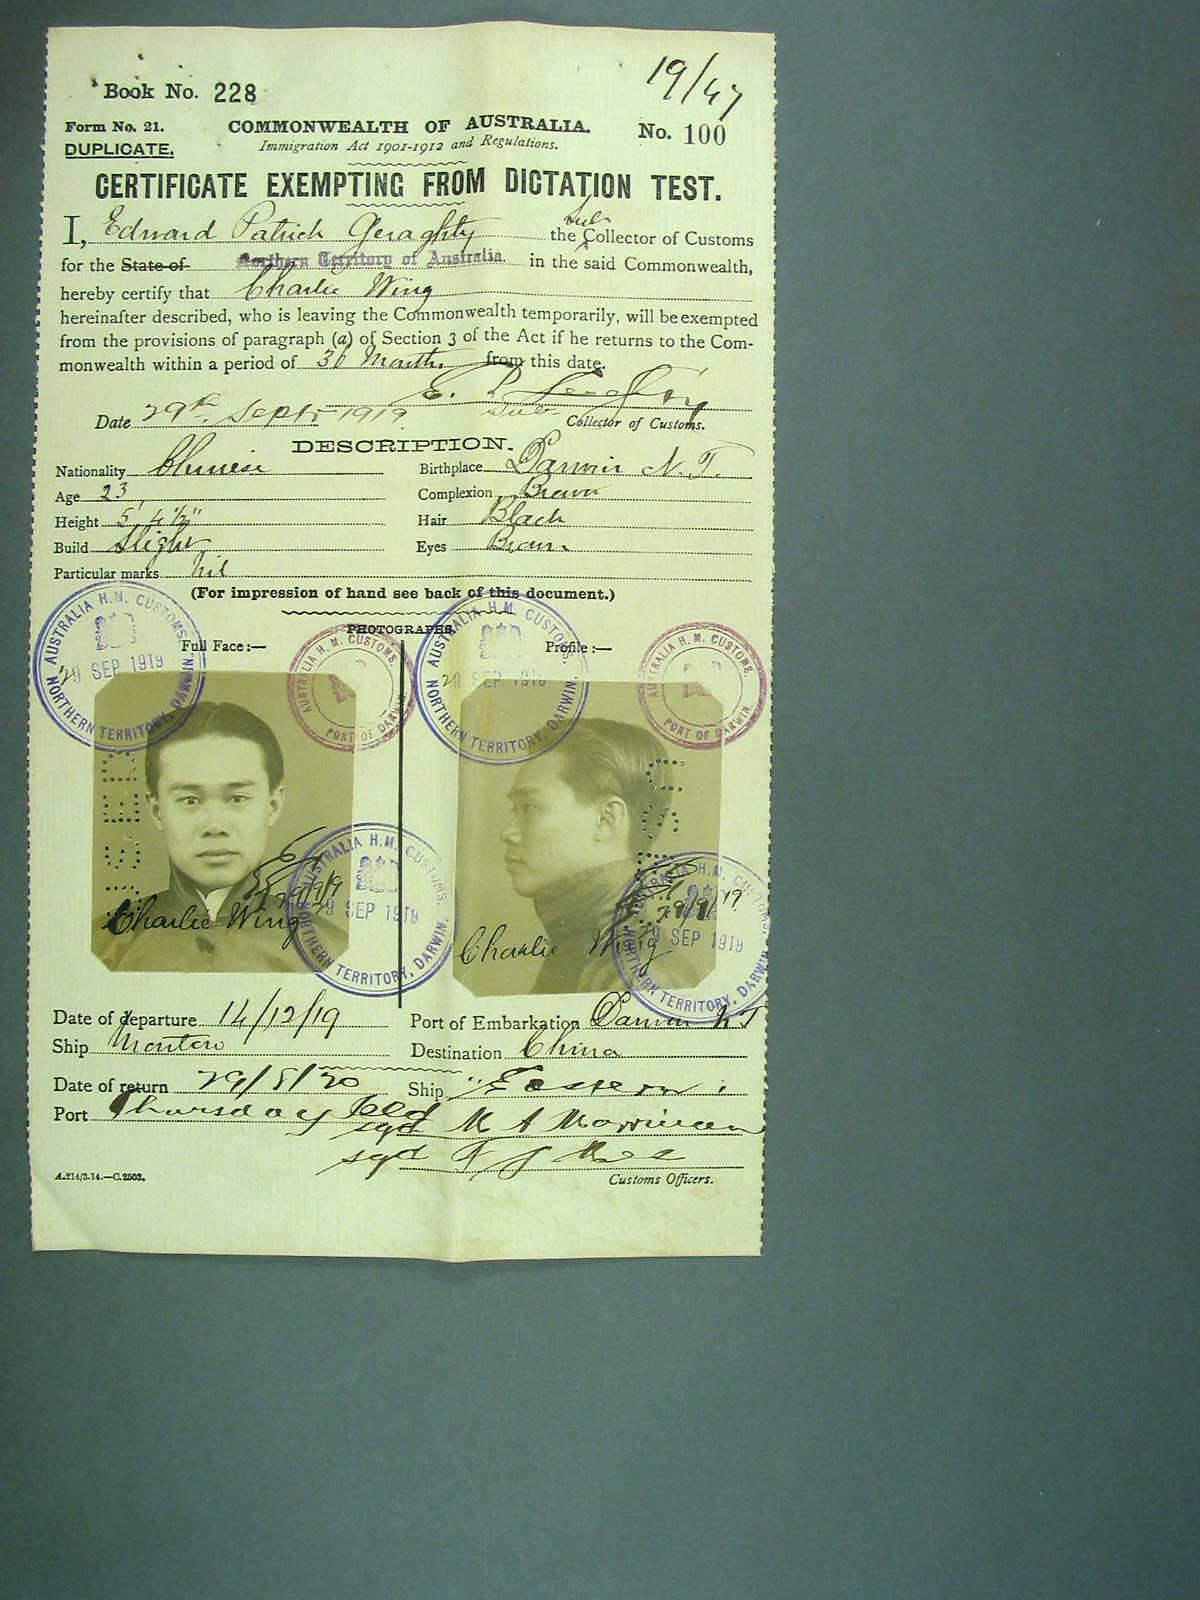 Book No. 228
19/47
Form No. 21.
COMMONWEALTH OF AUSTRALIA.
No. 100
DUPLICATE.
Immigration Act 1901-1912 and Regulations.
CERTIFICATE EXEMPTING FROM DICTATION TEST.
I, Edward Patrick Geraghty the Sub Collector of Customs
for the State of Northern Territory of Australia. in the said Commonwealth,
hereby certify that Charlie Wing
hereinafter described, who is leaving the Commonwealth temporarily, will be exempted
from the provisions of paragraph (a) of Section 3 of the Act if he returns to the Com-
monwealth within a period of 36 Months from this date.
E. P. Geraghty
Date 29th Septr 1919 Sub Collector of Customs.
DESCRIPTION.
Nationality Chinese Birthplace Darwin N.T.
Age 23 Complexion Brown
Height 5' 4½" Hair Black
Build Slight Eyes Brown
Particular marks nil
(For impression of hand see back of this document.)
PHOTOGRAPHS.
Full Face :— Profile :—
AUSTRALIA H.M. CUSTOMS. 29 SEP 1919 NORTHERN TERRITORY, DARWIN.
AUSTRALIA H.M. CUSTOMS. PORT OF DARWIN.
AUSTRALIA H.M. CUSTOMS. 29 SEP 1919 NORTHERN TERRITORY, DARWIN.
AUSTRALIA H.M. CUSTOMS. PORT OF DARWIN.
29/9/19
Charlie Wing
AUSTRALIA H.M. CUSTOMS. 29 SEP 1919 NORTHERN TERRITORY, DARWIN.
29/9/19
Charlie Wing
AUSTRALIA H.M. CUSTOMS. 29 SEP 1919 NORTHERN TERRITORY, DARWIN.
Date of departure 14/12/19 Port of Embarkation Darwin NT
Ship Montoro Destination China
Date of return 29/8/20 Ship "Eastern"
Port Thursday Isld
sgd M A Morrison
sgd
A.214/3.14.—C.2503.
Customs Officers.